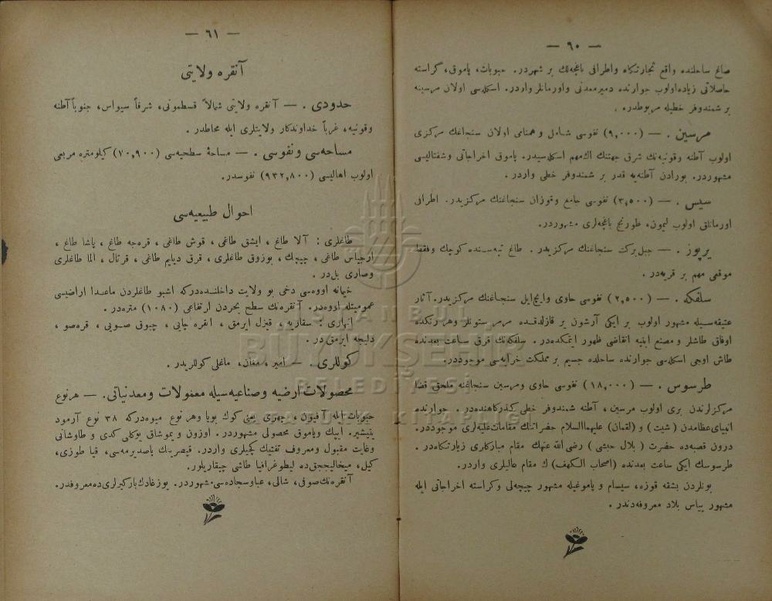 — ٦٠ —
صاغ ساحلنده واقع تجارتكاه واطرافى باغچه‌لك بر شهردر. حبوبات، پاموق، كراسته
حاصلاتى زياده اولوب جوارنده دميرمعدنى واورمانلر واردر. اسكله‌سى اولان مرسينه
بر شمندوفر خطيله مربوطدر.
مرسين . — (٩,٠٠٠) نفوسى شامل و همنامى اولان سنجاغك مركزى
اولوب آطنه وقونيه‌نك شرق جهتنك اك‌مهم اسكله‌سيدر. پاموق اخراجاتى وشفتاليسى
مشهوردر. بورادن آطنه‌يه قدر بر شمندوفر خطى واردر.
سيس . — (٣,٥٠٠) نفوسى جامع وقوزان سنجاغنك مركزيدر. اطرافى
اورمانلق اولوب ليمون، طورنج باغچه‌لرى مشهوردر.
يربوز . — جبل بركت سنجاغنك مركزيدر. طاغ تپه‌سنده كوچك وفقط
موقعى مهم بر قريه‌در.
سلفكه . — (٢,٥٠٠) نفوسى حاوى وايچ‌ايل سنجاغنك مركزيدر. آثار
عتيقه‌سيله مشهور اولوب بر ايكى آرشون ير قازلدقده مرمر ستونلر وهر رنكده
اوفاق طاشلر و مصنع ابنيه انقاضى ظهور ايتمكده‌در. سلفكه‌نك قرق ساعت بعدنده
طاش اوجى اسكله‌سى جوارنده ساحلده جسيم بر مملكت خرابه‌سى موجوددر.
طرسوس . — (١٨,٠٠٠) نفوسى حاوى ومرسين سنجاغنه ملحق قضا
مركزلرندن برى اولوب مرسين، آطنه شمندوفر خطى كذركاهنده‌در. جوارنده
انبياى عظامدن (شيت) و (لقمان) عليهما السلام حضراتنك مقامات عليه‌لرى موجوددر.
درون قصبه‌ده حضرت (بلال حبشى) رضى الله عنهك مقام مباركلرى زيارتكاه‌در.
طرسوسك ايكى ساعت بعدنده (اصحاب الكهف) ك مقام عاليلرى واردر.
بونلردن بشقه قوزه، سيسام و پاموغيله مشهور چيچه‌لى وكراسته اخراجاتى ايله
مشهور پياس بلاد معروفه‌دندر.
— ٦١ —
آنقره ولايتى
حدودى . — آنقره ولايتى شمالاً قسطمونى، شرقاً سيواس، جنوباً آطنه
وقونيه، غرباً خداوندكار ولايتلرى ايله محاطدر.
مساحه‌سى و نفوسى . — مساحۀ سطحيه‌سى (٧٠,٩٠٠) كيلومتره مربعى
اولوب اهاليسى (٩٣٢,٨٠٠) نفوسدر.
احوال طبيعيه‌سى
طاغلرى : آلا طاغ ، ايشق طاغى ، قوش طاغى ، قره‌جه طاغ ، پاشا طاغ ،
ارجياس طاغى ، چيچك ، بوزوق طاغلرى ، قرق ديلم طاغى ، قرتال ، الما طاغلرى
وصارى بل‌در .
حيمانه اووه‌سى دخى بو ولايت داخلنده‌دركه اشبو طاغلردن ماعدا اراضيسى
عموميتله اووه‌در. آنقره‌نك سطح بحردن ارتفاعى (١٠٨٠) متره‌در.
انهارى : سقاريه ، قيزل ايرمق ، انقره چايى ، چبوق صويى ، قره‌صو ،
دليجه ايرمق‌در .
كوللرى . — امير، مغان، ماغلى كوللريدر.
محصولات ارضيه و صناعيه‌سيله معمولات ومعدنياتى . — هرنوع
حبوبات ايله آفيون، جهرى يعنى كوك بويا وهر نوع ميوه‌دركه ٣٨ نوع آرمود
يتيشير. ايپك وپاموق محصولى مشهوردر. اوزون و يموشاق يوكلى كدى و طاوشانى
وغايت مقبول ومعروف تفتيك كچيلرى واردر. قيصريه‌نك باصديرمه‌سى، قبا طوزى،
كيل، ميخاليجقده ليطوغرافيا طاشى چيقاريلور.
آنقره‌نك صوفى، شالى، عباوسجاده‌سى مشهوردر. يوزغادك باركيرلرى ده معروفدر.